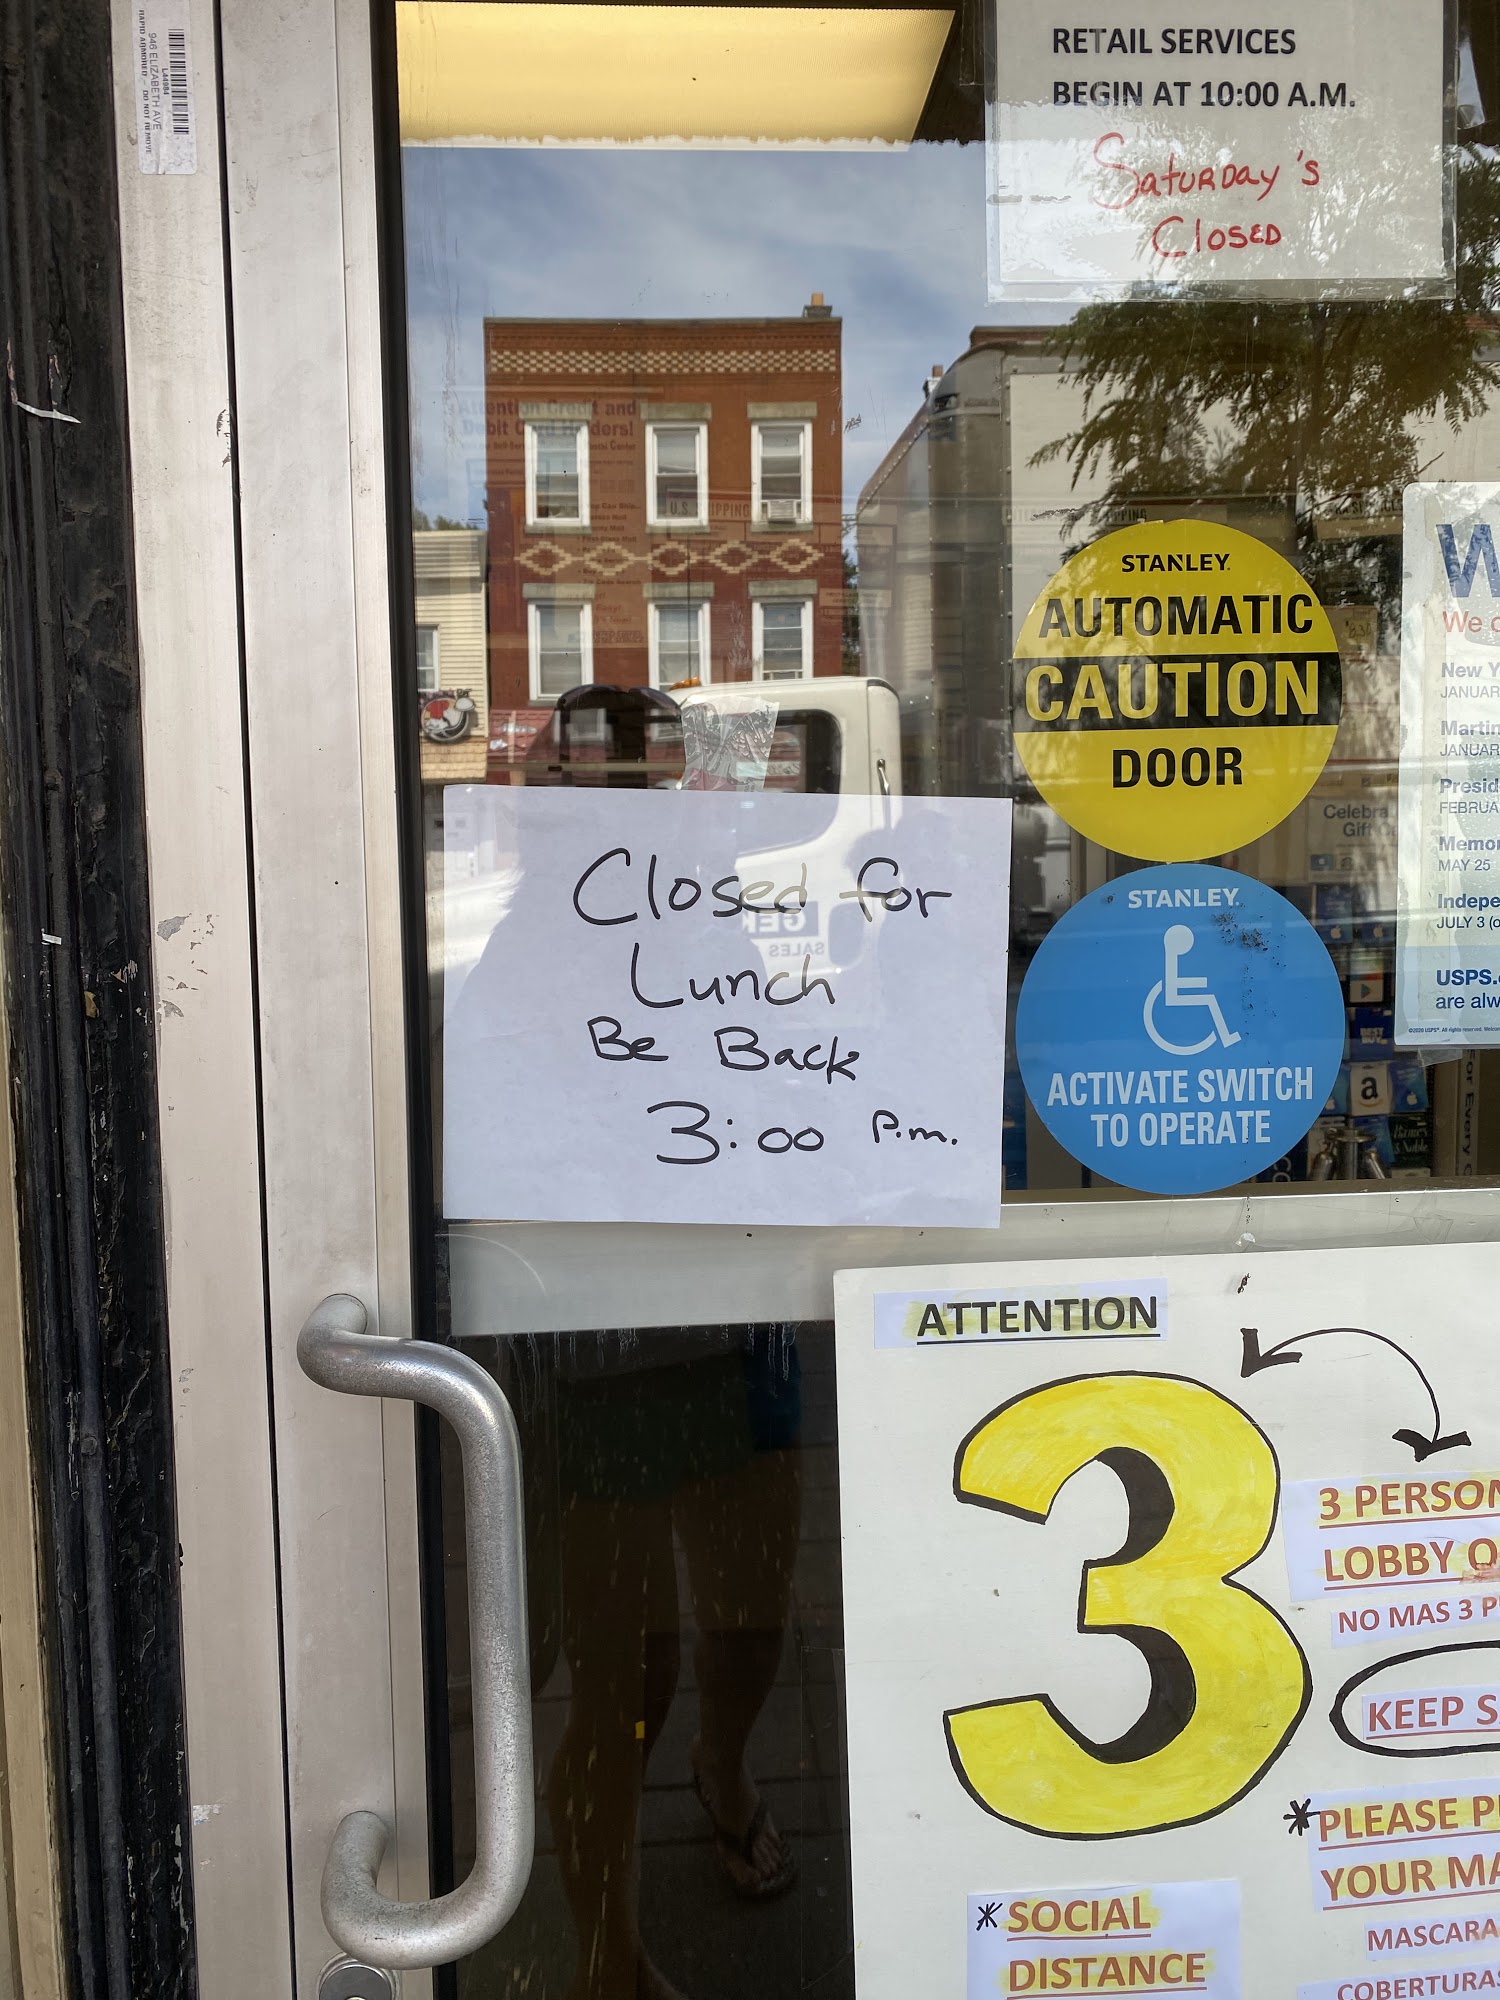 946 ELIZABETH AVE
RAPID ARMORED - DO NOT REMOVE
RETAIL SERVICES
BEGIN AT 10:00 A.M.
Saturday's
Closed
Attention Credit and
Debit Card Holders!
STANLEY
AUTOMATIC
CAUTION
DOOR
STANLEY
ACTIVATE SWITCH
TO OPERATE
W
We
New Y
JANUAR
Martin
JANUAR
Presid
FEBRUA
Memor
MAY 25
Indepe
JULY 3 (o
USPS.
are alw
Celebra
Gift
BEST BUY
a
Barnes
& Noble
Closed for
Lunch
Be Back
3:00 P.m.
SALES
ATTENTION
3
3 PERSON
LOBBY O
NO MAS 3 P
KEEP S
*PLEASE P
YOUR MA
MASCARA
COBERTURAS
* SOCIAL
DISTANCE